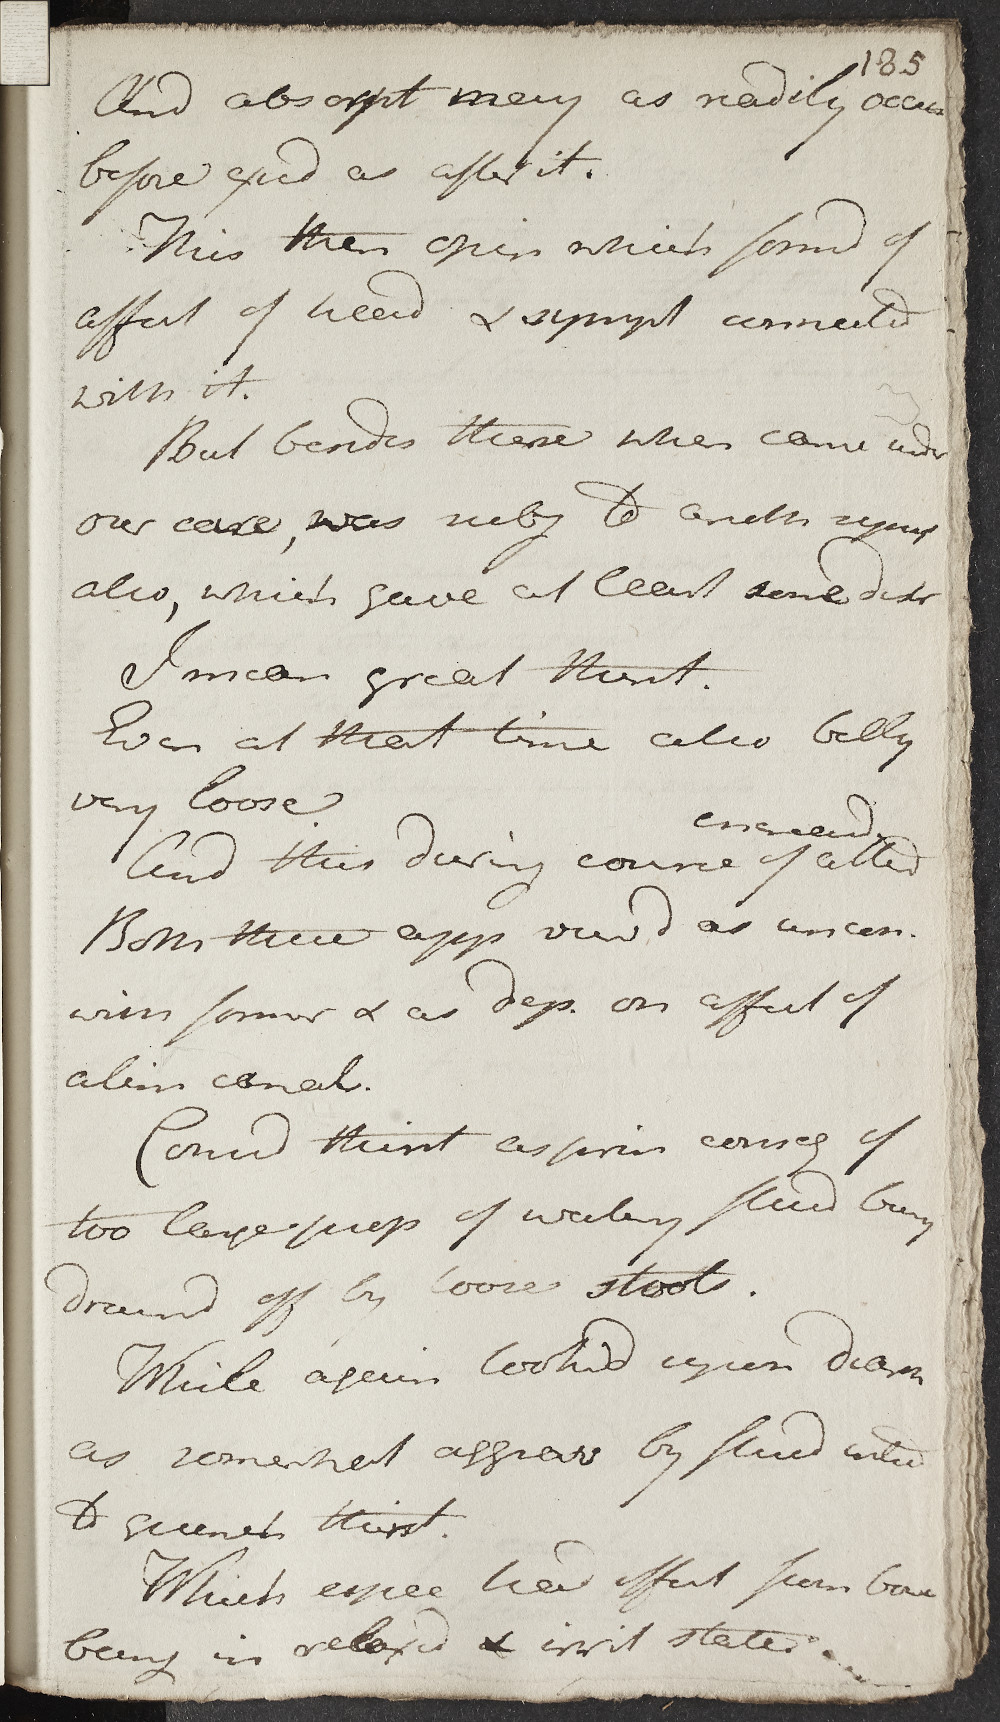 185
And absorpt may as readily occur
before exud as after it.
This then opin which formd of
affect of head & sympt connected
with it.
But besides these when came under
our care, was subj to anoth sympt
also, which gave at least some distr
I mean great thirst.
Even at that time also belly
very loose
encreasd
And this during course of atted
Both these app viewd as uncon.
with former & as dep. on affect of
alim canal.
Consid thirst as prin conseq of
too large prop of watery fluid being
draind off by loose stools.
While again lookd upon diarrh
as somewhat aggrav by fluid
to quench thirst.
Which espec had effect from bow
being in relaxd & irrit state.